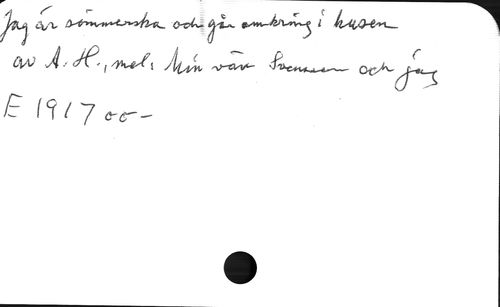 Jag är sömmerska och går omkring i husen
av A. H., mel. Min vän Svensson och jag
E 1917 oo-